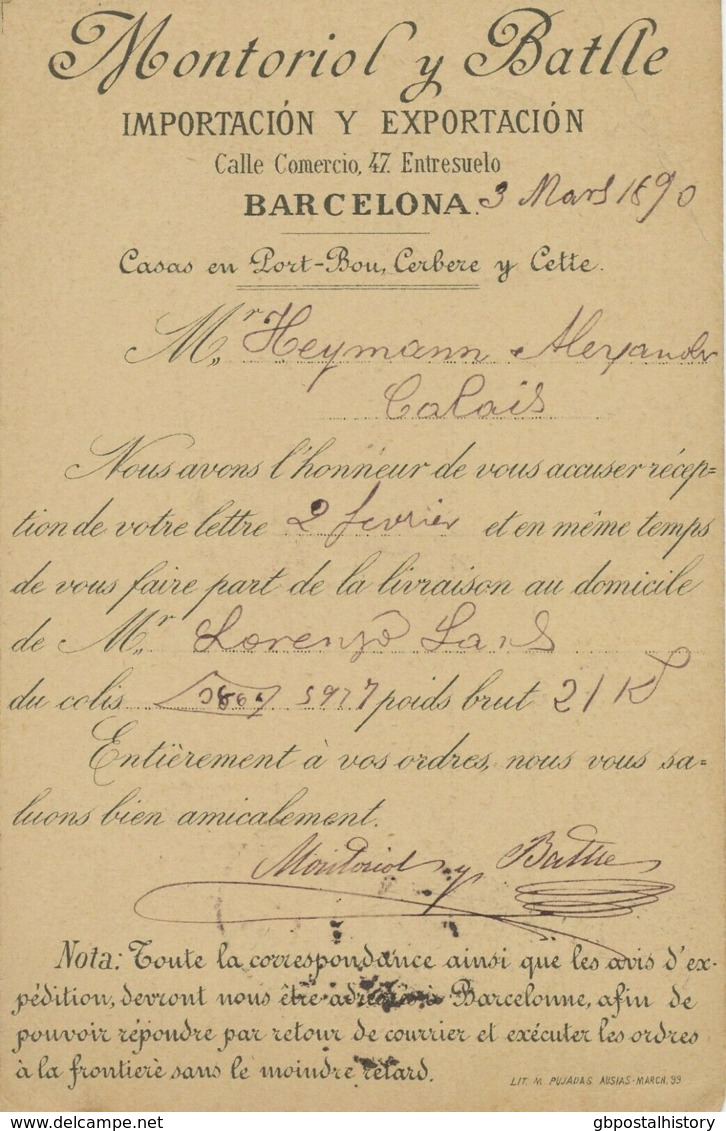 Montoriol y Batlle
IMPORTACIÓN Y EXPORTACIÓN
Calle Comercio, 47. Entresuelo
BARCELONA. 3 Mars 1890
Casas en Port-Bou, Cerbere y Cette.
Mr. Heymann Alexander
Calais
Nous avons l'honneur de vous accuser récep=
tion de votre lettre 2 fevrier et en même temps
de vous faire part de la livraison au domicile
de Mr. Lorenzo Sans
du colis 5977 poids brut 21 K
Entièrement à vos ordres, nous vous sa=
luons bien amicalement.
Montoriol y Batlle
Nota: Toute la correspondance ainsi que les avis d'ex-
pédition, devront nous être à Barcelonne, afin de
pouvoir répondre par retour de courrier et exécuter les ordres
à la frontière sans le moindre retard.
LIT. M. PUJADAS AUSIAS-MARCH, 99
gbpostalhistory